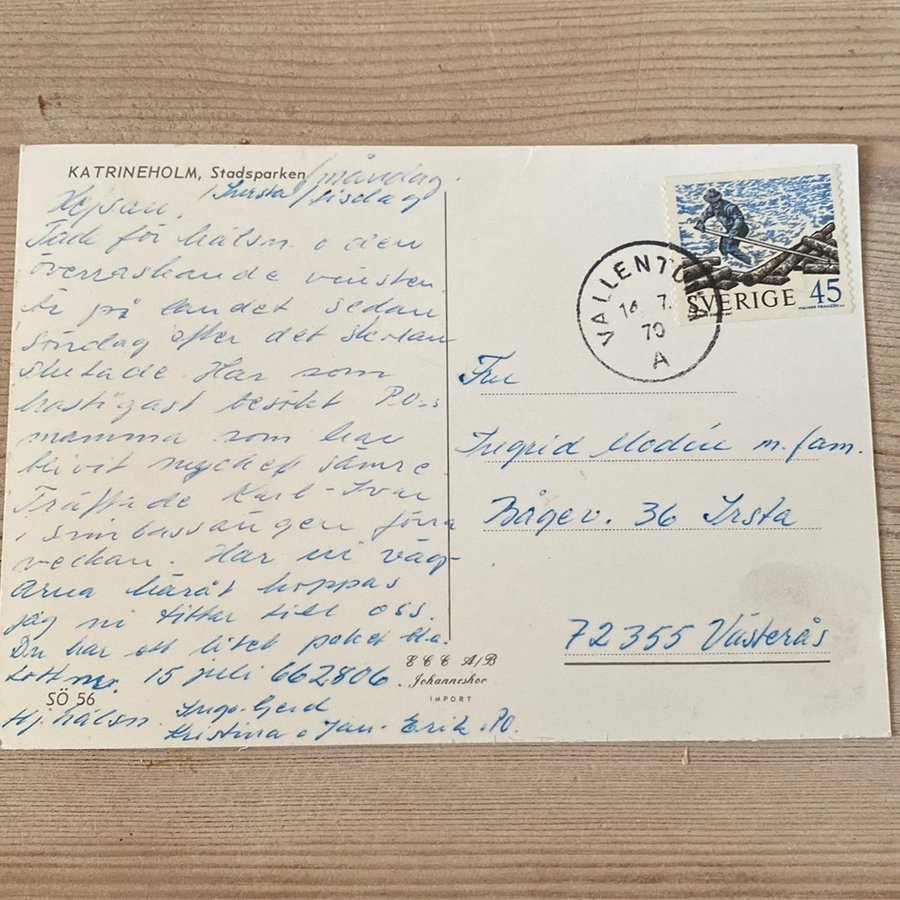 KATRINEHOLM, Stadsparken
måndag.
tisdag
Hejsan.
Tack för hälsn. o den
överraskande vinsten.
Är på landet sedan
söndag efter det skolan
slutade. Har som
hastigast besökt P.O-s
mamma som har
blivit mycket sämre.
Träffade Karl-Ivar
i simbassängen förra
veckan. Har ni väg-
arna häråt hoppas
jag ni tittar till oss.
Du har ett litet paket bl.a.
Lott nr. 15 juli 662806.
SÖ 56
Hj. hälsn. Inga-Gerd
Kristina o Jan-Erik. PO.
ECC A/B
Johanneshov
IMPORT
VALLENTUNA
14.7.
70
A
SVERIGE 45
Fru
Ingrid Modén m. fam.
Bågev. 36 Irsta
72355 Västerås